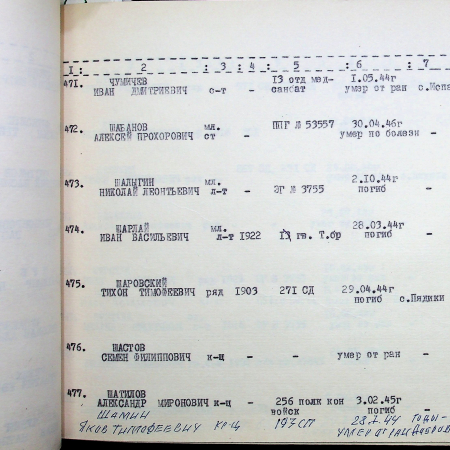 1 : 2 : 3 : 4 : 5 : 6 : 7
471. ЧУМИЧЕВ 13 отд мед- 1.05.44г
ИВАН ДМИТРИЕВИЧ с-т - санбат умер от ран с.Испа
472. ШАБАНОВ мл. ППГ № 53557 30.04.46г
АЛЕКСЕЙ ПРОХОРОВИЧ ст - умер по болезн -
473. ШАЛЫГИН мл. 2.10.44г
НИКОЛАЙ ЛЕОНТЬЕВИЧ л-т - ЭГ № 3755 погиб -
474. ШАРЛАЙ мл. 28.03.44г
ИВАН ВАСИЛЬЕВИЧ л-т 1922 гв. Т.бр погиб -
475. ШАРОВСКИЙ 29.04.44г
ТИХОН ТИМОФЕЕВИЧ ряд 1903 271 СД погиб с.Пядики
476. ШАСТОВ
СЕМЕН ФИЛИППОВИЧ к-ц - - умер от ран -
477. ШАТИЛОВ 256 полк кон 3.02.45г
АЛЕКСАНДР МИРОНОВИЧ к-ц - войск погиб -
Шамин
Яков Тимофеевич кр-ц 197 СП умер от ран